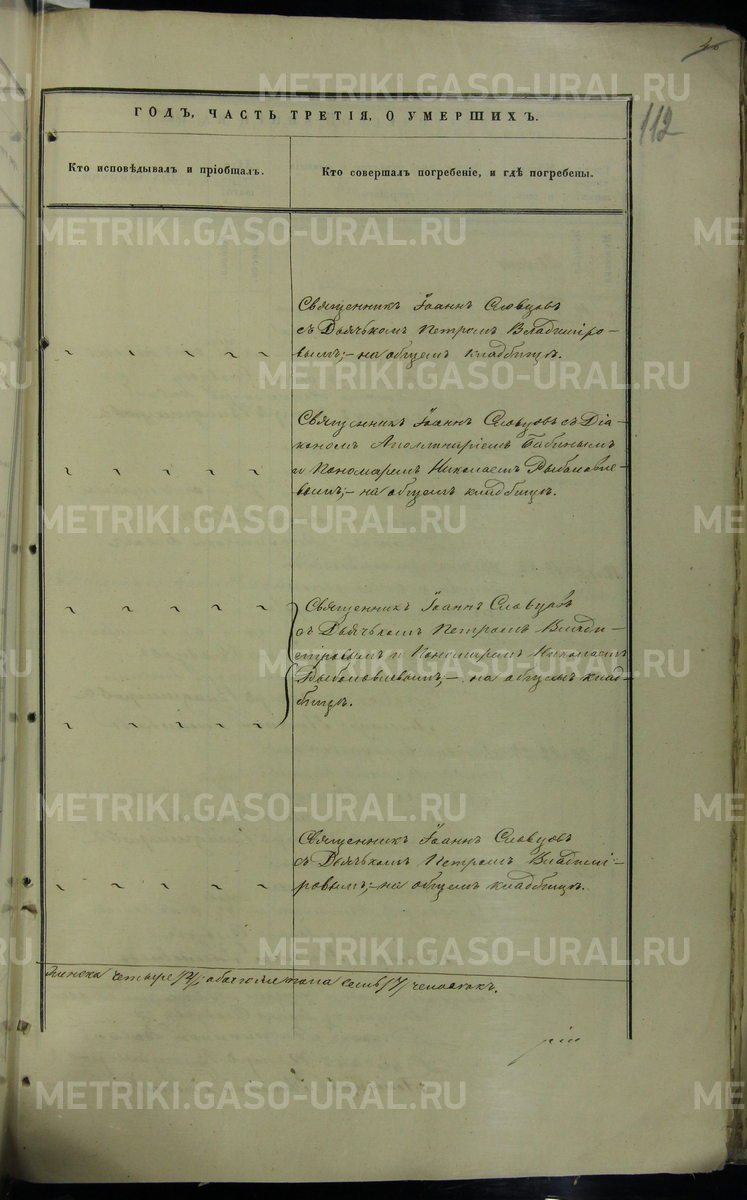 112
ГОДЪ, ЧАСТЬ ТРЕТІЯ, О УМЕРШИХЪ.
Кто исповѣдывалъ и пріобщалъ.
Кто совершалъ погребеніе, и гдѣ погребены.
Священникъ Іоаннъ Словцовъ
съ Дьячькомъ Петромъ Владиміро-
вымъ; - на общемъ кладбищѣ.
Священникъ Іоаннъ Словцовъ съ Діа-
кономъ Аполинаріемъ Бабинымъ
и Пономаремъ Николаемъ
вымъ; - на общемъ кладбищѣ.
Священникъ Іоаннъ Словцовъ
съ Дьячькомъ Петромъ Влади-
міровымъ и Пономаремъ Николаемъ
- на общемъ клад-
бищѣ.
Священникъ Іоаннъ Словцовъ
съ Дьячькомъ Петромъ Владимі-
ровымъ; - на общемъ кладбищѣ.
женска четыре /4/; обоего пола семь /7/ человѣкъ.
METRIKI.GASO-URAL.RU